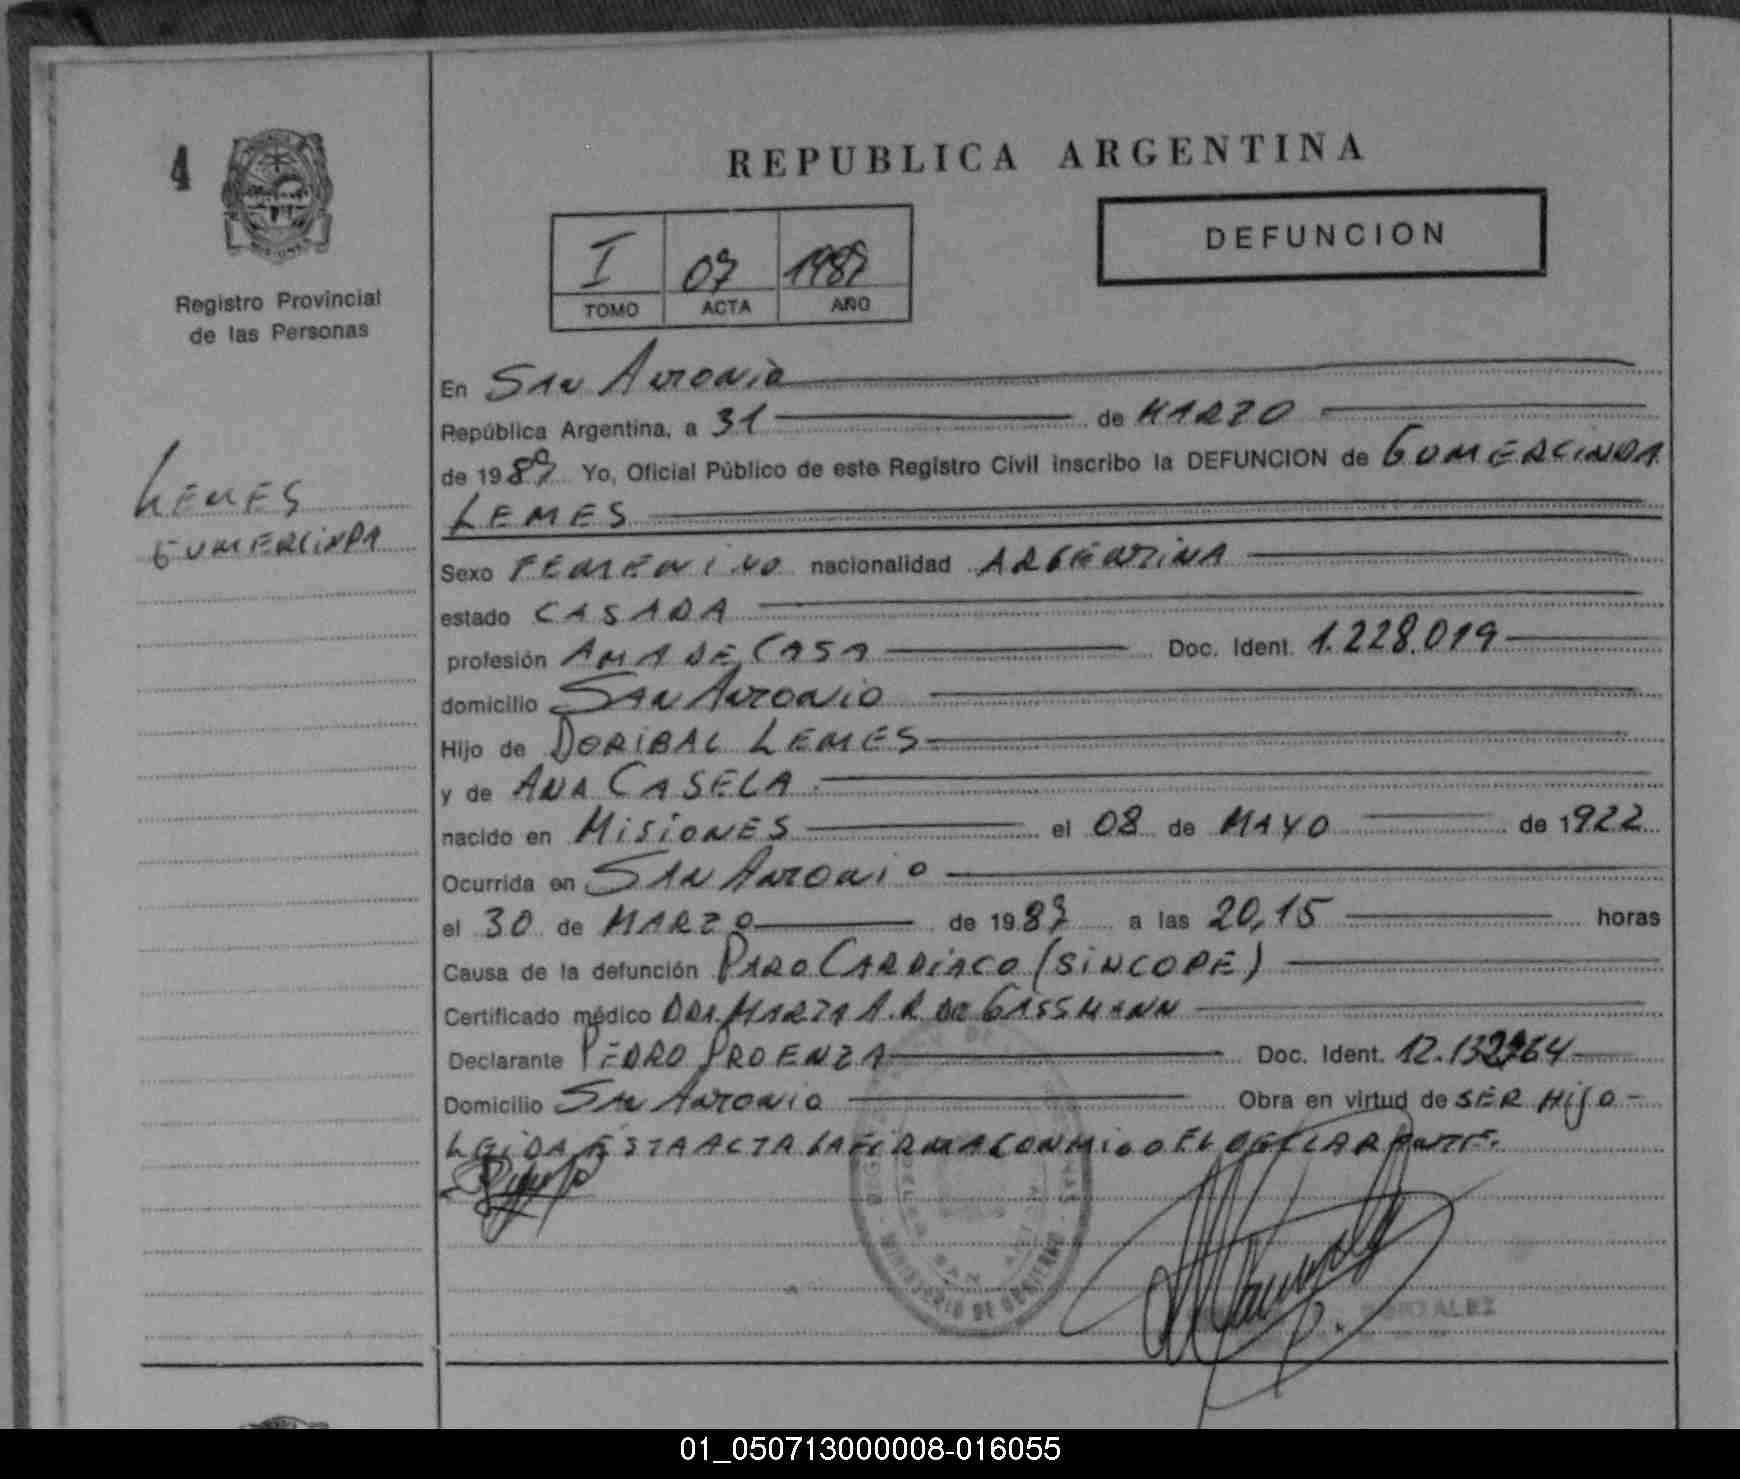 4
REPUBLICA ARGENTINA
DEFUNCION
I 07 1987
TOMO ACTA AÑO
Registro Provincial
de las Personas
LEMES
GUMERCINDA
En SAN ANTONIO
República Argentina, a 31 de MARZO
de 1987 Yo, Oficial Público de este Registro Civil inscribo la DEFUNCION de GUMERCINDA
LEMES
Sexo FEMENINO nacionalidad ARGENTINA
estado CASADA
profesión AMA DE CASA Doc. Ident. 1.228.019
domicilio SAN ANTONIO
Hijo de DORIBAL LEMES
y de ANA CASELA
nacido en MISIONES el 08 de MAYO de 1922
Ocurrida en SAN ANTONIO
el 30 de MARZO de 1987 a las 20,15 horas
Causa de la defunción PARO CARDIACO (SINCOPE)
Certificado médico DRA. MARTA A.R. DE GASSMANN
Declarante PEDRO PROENZA Doc. Ident.
Domicilio SAN ANTONIO Obra en virtud de SER HIJO
LEIDA ESTA ACTA LA FIRMA CONMIGO EL DECLARANTE.
MINISTERIO DE GOBIERNO
GONZALEZ
01_050713000008-016055